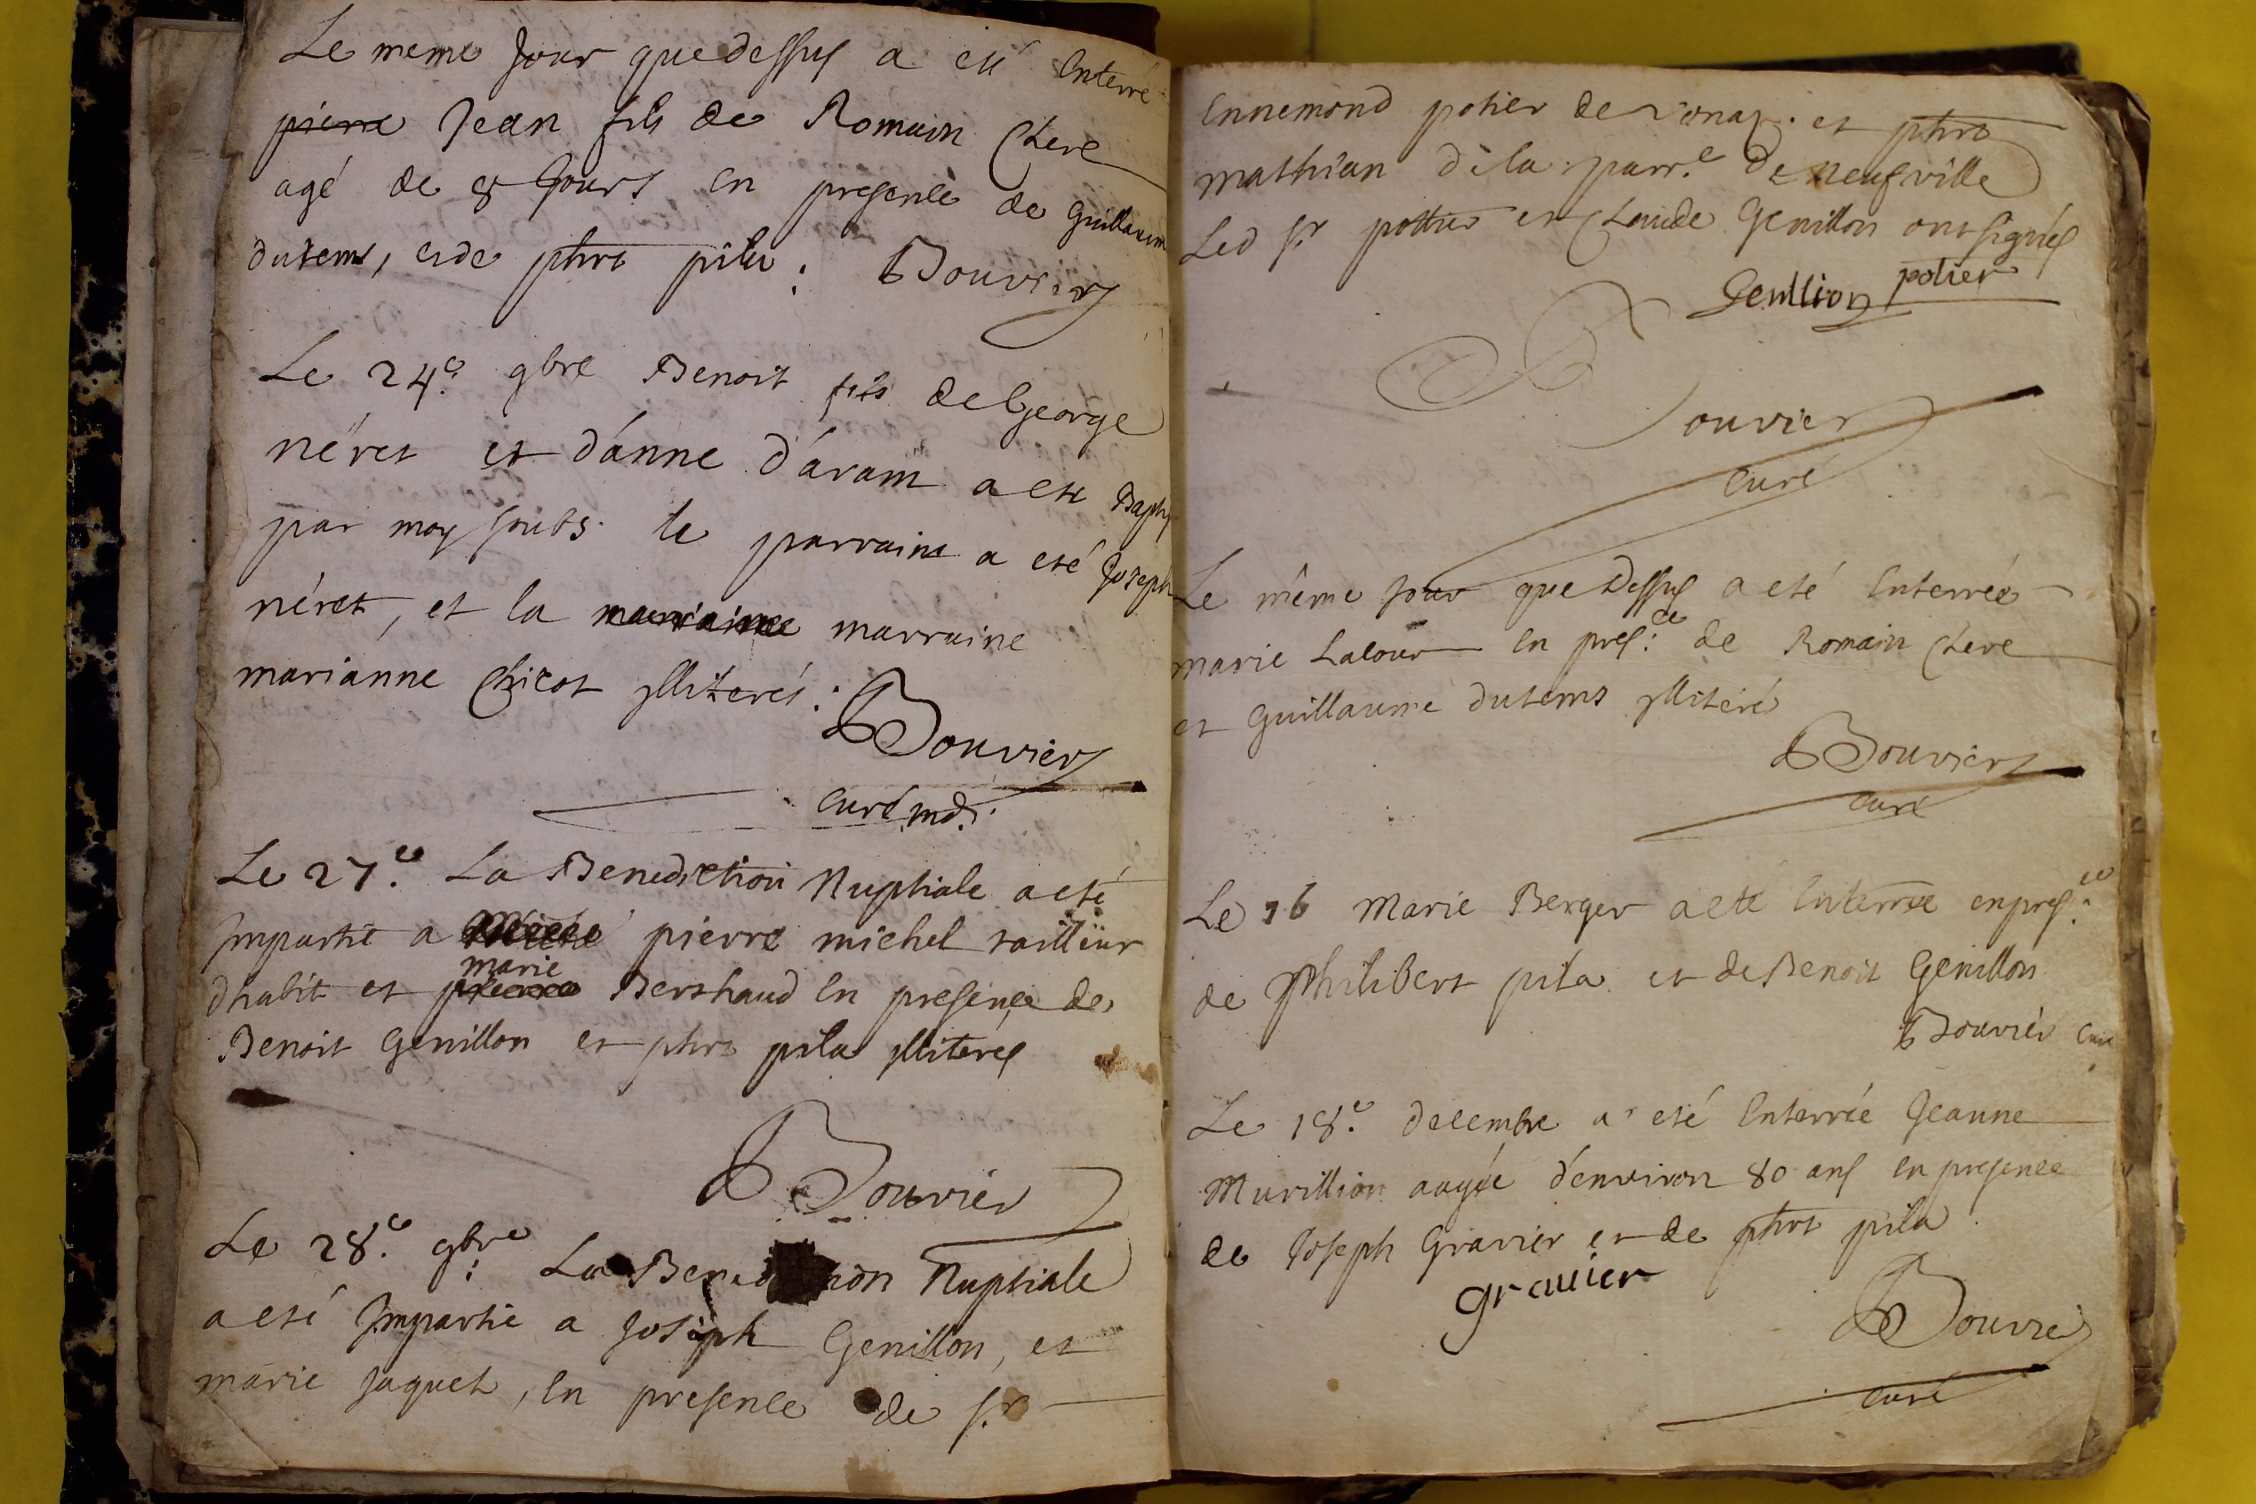 Le meme Jour que dessus a eté Enterré
pierre Jean fils de Romain Chere
agé de 8 Jours en presence de Guillaume
dutems, et de phrt pila. Bouvier
Le 24.e 9bre Benoit fils de George
néret et d'anne d'aram a eté Bapts
par moy soubs. le parrain a eté Joseph
néret, et la marraine marraine
marianne Chicot jlliterés.
Bouvier
Curé md.
Le 27.e La Benediction Nuptiale a eté
Jmpartie a pierre michel tailleur
marie
d'habit et pierre Berthaud En presence de
Benoit Genillon et phrt pila jlliterés
Bouvier
Le 28.e 9bre La Benediction Nuptiale
a eté Jmpartie a Joseph Genillon, et
marie Jaquet, En presence de Sr
Ennemond potier de et phrt
mathian de la parr.e de Neufville
Led Sr pottier et Claude Genillon ont signés
Genllion potier
Bouvier
Curé
Le même Jour que Dessus a eté Enterrée
marie Latour En pres.ce de Romain Chere
et Guillaume dutems jllitéré
Bouvier
Curé
Le 16 Marie Berger a eté Enterrée en pres.ce
de Philibert pila et de Benoit Genillon
Bouvier Curé
Le 18.e decembre a eté Enterrée Jeanne
Murillion aagée d'environ 80 ans En presence
de Joseph Gravier et de phrt pila
grauier
Bouvier
Curé